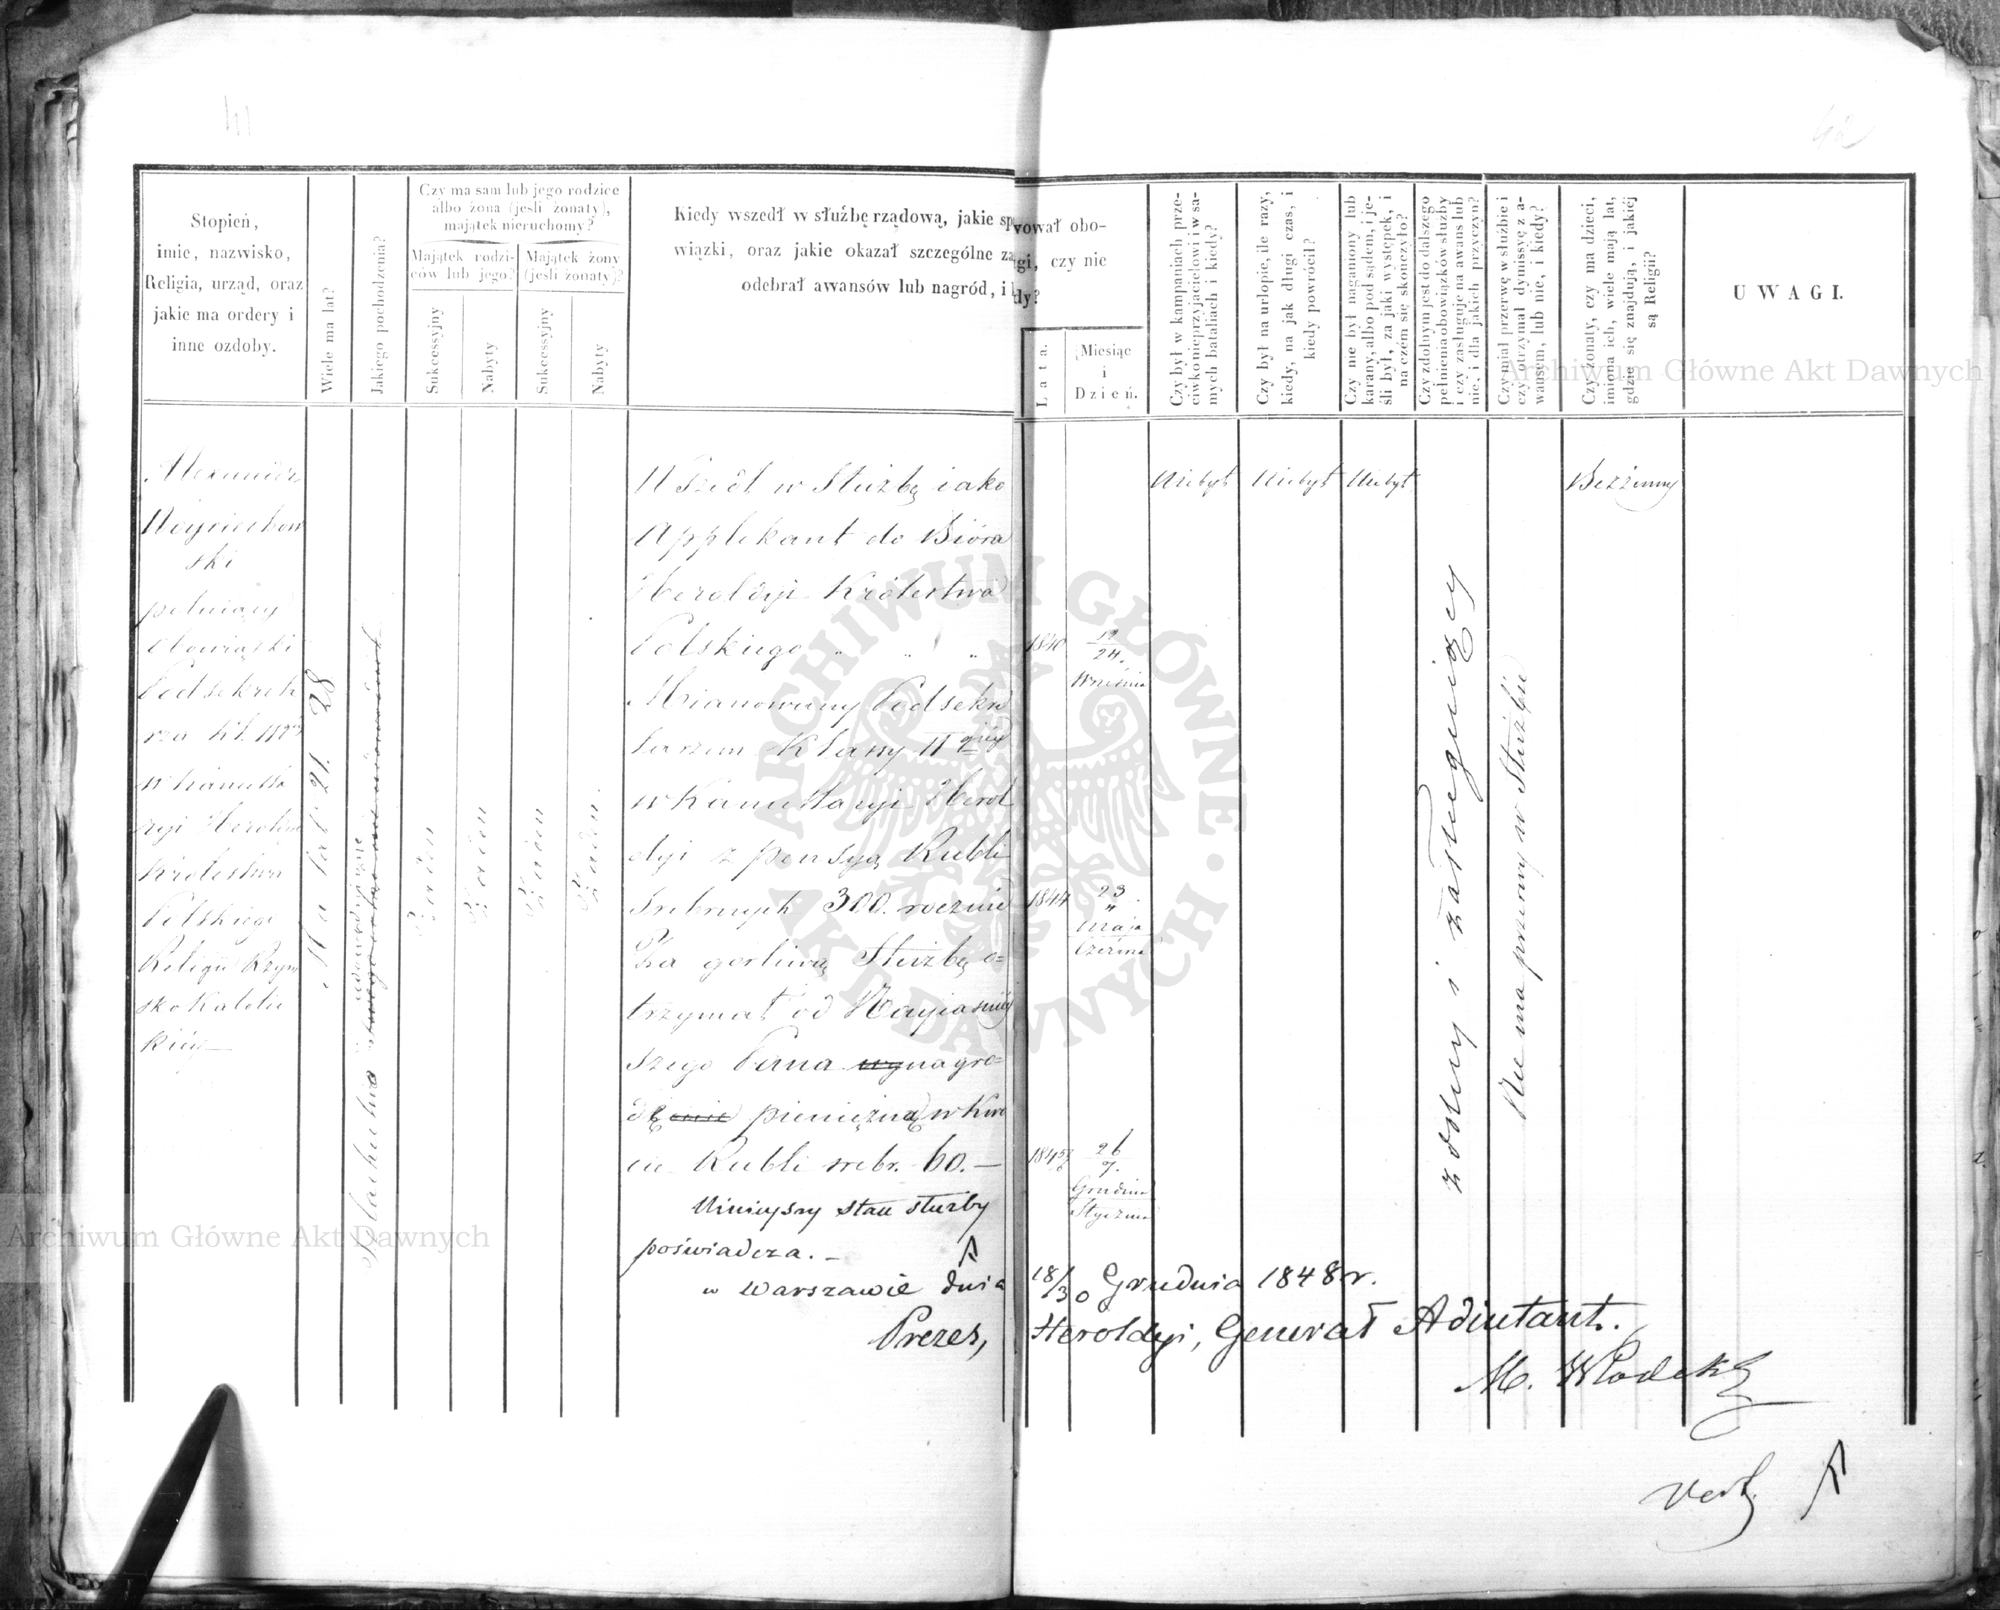 41
42
Stopień,
imie, nazwisko,
Religia, urząd, oraz
jakie ma ordery i
inne ozdoby.
Wiele ma lat?
Jakiego pochodzenia?
Czy ma sam lub jego rodzice
albo żona (jeśli żonaty),
majątek nieruchomy?
Majątek rodzi-
ców lub jego?
Majątek żony
(jeśli żonaty)?
Sukcessyjny
Nabyty
Sukcessyjny
Nabyty
Kiedy wszedł w służbę rządową, jakie spwował obo-
wiązki, oraz jakie okazał szczególne zagi, czy nie
odebrał awansów lub nagród, i kdy?
Lata.
Miesiąc
i
Dzień.
Czy był w kampaniach prze-
ciwko nieprzyjacielowi i w sa-
mych bataliach i kiedy?
Czy był na urlopie, ile razy,
kiedy, na jak długi czas, i
kiedy powrócił?
Czy nie był naganiony lub
karany, albo pod sądem, i je-
śli był, za jaki występek, i
na czém się skończyło?
Czy zdolnym jest do dalszego
pełnienia obowiązków służby
i czy zasługuje na awans lub
nie, i dla jakich przyczyn?
Czy miał przerwę w służbie i
czy otrzymał dymissyę z a-
wansem, lub nie, i kiedy?
Czy żonaty, czy ma dzieci,
imiona ich, wiele mają lat,
gdzie się znajdują, i jakiéj
są Religii?
UWAGI.
Alexander
Woyciechow
ski
pełniący
Obowiązki
Podsekreta
rza kl. II
w Kancella
ryi Heroldyi
Królestwa
Polskiego
Religii Rzym
sko Katolic
kiéj
Ma lat 21. 28
Szlachectwo
Żaden
Żaden
Żaden
Żaden.
Wszedł w Służbę iako
Applikant do Bióra
Heroldyi Królestwa
Polskiego " " "
1840
12/24.
Września
Mianowany Podsekre
tarzem Klassy II
w Kancellaryi Herol
dyi z pensyą Rubli
Srebrnych 300. rocznie
1844
23
Maja
Czerwca
Za gorliwą Służbę o=
trzymał od Nayiaśniéy
szego Pana nagro=
dę pieniężną w Kwo
cie Rubli srebr. 60.—
1845/6
26/7.
Grudnia
Stycznia
Niebył
Niebył
Niebył
zdolny i zasługuiący
Nie ma przerwy w Służbie
Bezżenny
Ninieyszy stan służby
poświadcza.—
w Warszawie dnia 18/30 Grudnia 1848 r.
Prezes, Heroldyi, Generał Adiutant.
M. Włodek
vert.
Archiwum Główne Akt Dawnych
Archiwum Główne Akt Dawnych
ARCHIWUM GŁÓWNE · AKT DAWNYCH ·